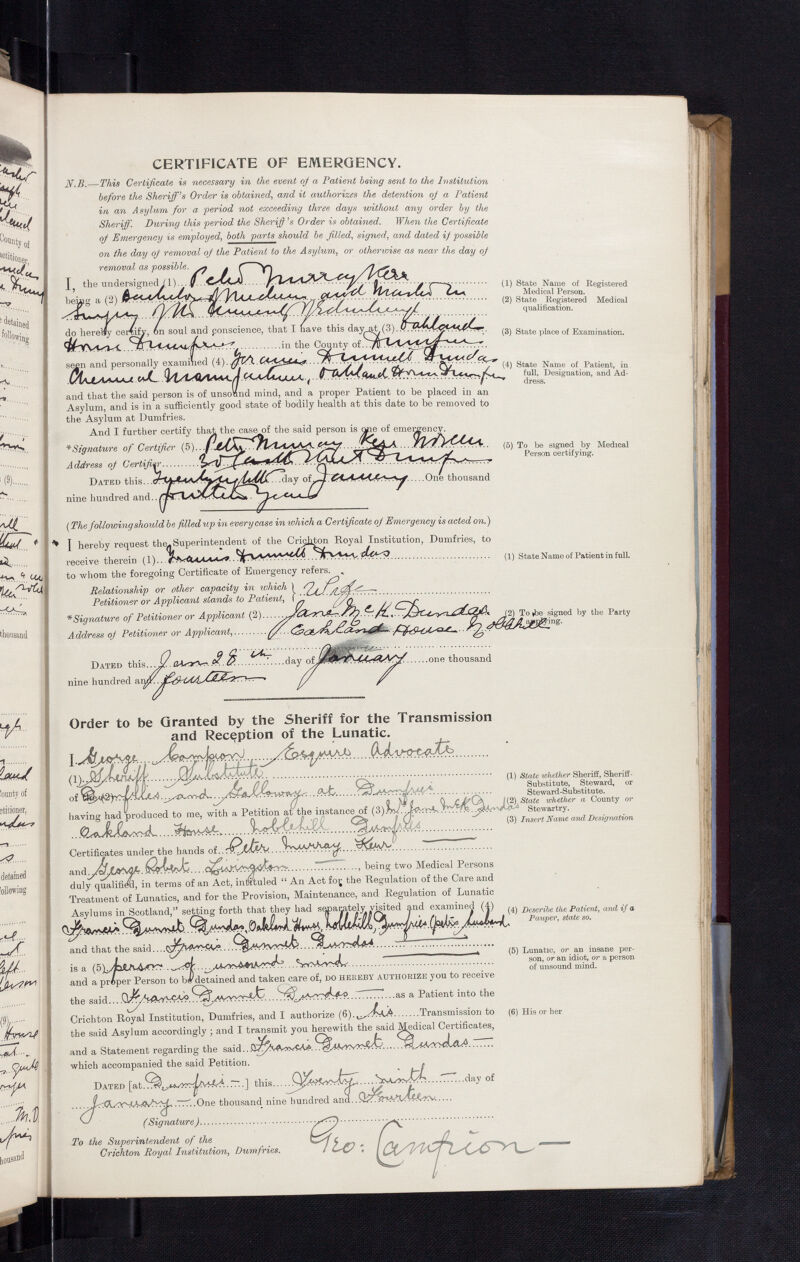 CERTIFICATE OF EMERGENCY.
N.B.—This Certificate is necessary in the event of a Patient being sent to the Institution
before the Sheriff's Order is obtained, and it authorizes the detention of a Patient
in an Asylum for a period not exceeding three days without any order by the
Sheriff. During this period the Sheriff's Order is obtained. When the Certificate
of Emergency is employed, both parts should be filled, signed, and dated if possible
on the day of removal of the Patient to the Asylum, or otherwise as near the day of
removal as possible.
I, the undersigned (1) Peter Murray Kerr
(1) State Name of Registered Medical Person.
being a (2) Bachelor of Medicine and Master in
(2) State Registered Medical qualification.
Surgery of the University of Edinburgh
do hereby certify, on soul and conscience, that I have this day at (3) Oakland
(3) State place of Examination.
House Dumfries in the County of Dumfries
seen and personally examined (4) Francis Dunnett Dundas
(4) State Name of Patient, in full, Designation, and Address.
Chemical Manufacturer, Oakland House Dumfries
and that the said person is of unsound mind, and a proper Patient to be placed in an
Asylum, and is in a sufficiently good state of bodily health at this date to be removed to
the Asylum at Dumfries.
And I further certify that the case of the said person is one of emergency.
*Signature of Certifier (5) Peter Murray Kerr
(5) To be signed by Medical Person certifying.
Address of Certifier Castle Street Dumfries
DATED this Twentyeighth day of January One thousand
nine hundred and fourteen years
(The following should be filled up in every case in which a Certificate of Emergency is acted on.)
* I hereby request the Superintendent of the Crichton Royal Institution, Dumfries, to
receive therein (1) Francis Dunnett Dundas
(1) State Name of Patient in full.
to whom the foregoing Certificate of Emergency refers.
Relationship or other capacity in which Petitioner or Applicant stands to Patient, } Wife
*Signature of Petitioner or Applicant (2) Jane McK. Dundas.
(2) To be signed by the Party applying.
Address of Petitioner or Applicant, Oakland House Noblehill
DATED this Jan 28th day of January one thousand
nine hundred and fourteen
Order to be Granted by the Sheriff for the Transmission
and Reception of the Lunatic.
I George Campion Esquire Advocate
(1) Sheriff Substitute
(1) State whether Sheriff, Sheriff-Substitute, Steward, or Steward-Substitute.
of Dumfries and Galloway at Dumfries
(2) State whether a County or Stewartry.
having had produced to me, with a Petition at the instance of (3) Mrs Jane McK Dundas
(3) Insert Name and Designation
Oakland House Noblehill Dumfries
Certificates under the hands of Peter Murray Kerr
and George Robert Livingston, being two Medical Persons
duly qualified, in terms of an Act, intituled "An Act for the Regulation of the Care and
Treatment of Lunatics, and for the Provision, Maintenance, and Regulation of Lunatic
Asylums in Scotland," setting forth that they had separately visited and examined (4)
(4) Describe the Patient, and if a Pauper, state so.
Francis Dunnet Dundas, Oakland House, Noblehill, Dumfries husband
and that the said Francis Dunnet Dundas
is a (5) person of unsound mind
(5) Lunatic, or an insane person, or an idiot, or a person of unsound mind.
and a proper Person to be detained and taken care of, DO HEREBY AUTHORIZE you to receive
the said Francis Dunnet Dundas — as a Patient into the
Crichton Royal Institution, Dumfries, and I authorize (6) his Transmission to
(6) His or her
the said Asylum accordingly; and I transmit you herewith the said Medical Certificates,
and a Statement regarding the said Francis Dunnet Dundas —
which accompanied the said Petition.
DATED [at Dumfries — ] this Twenty ninth — day of
January — One thousand nine hundred and Fourteen
(Signature)
Geo: Campion —
To the Superintendent of the
Crichton Royal Institution, Dumfries.